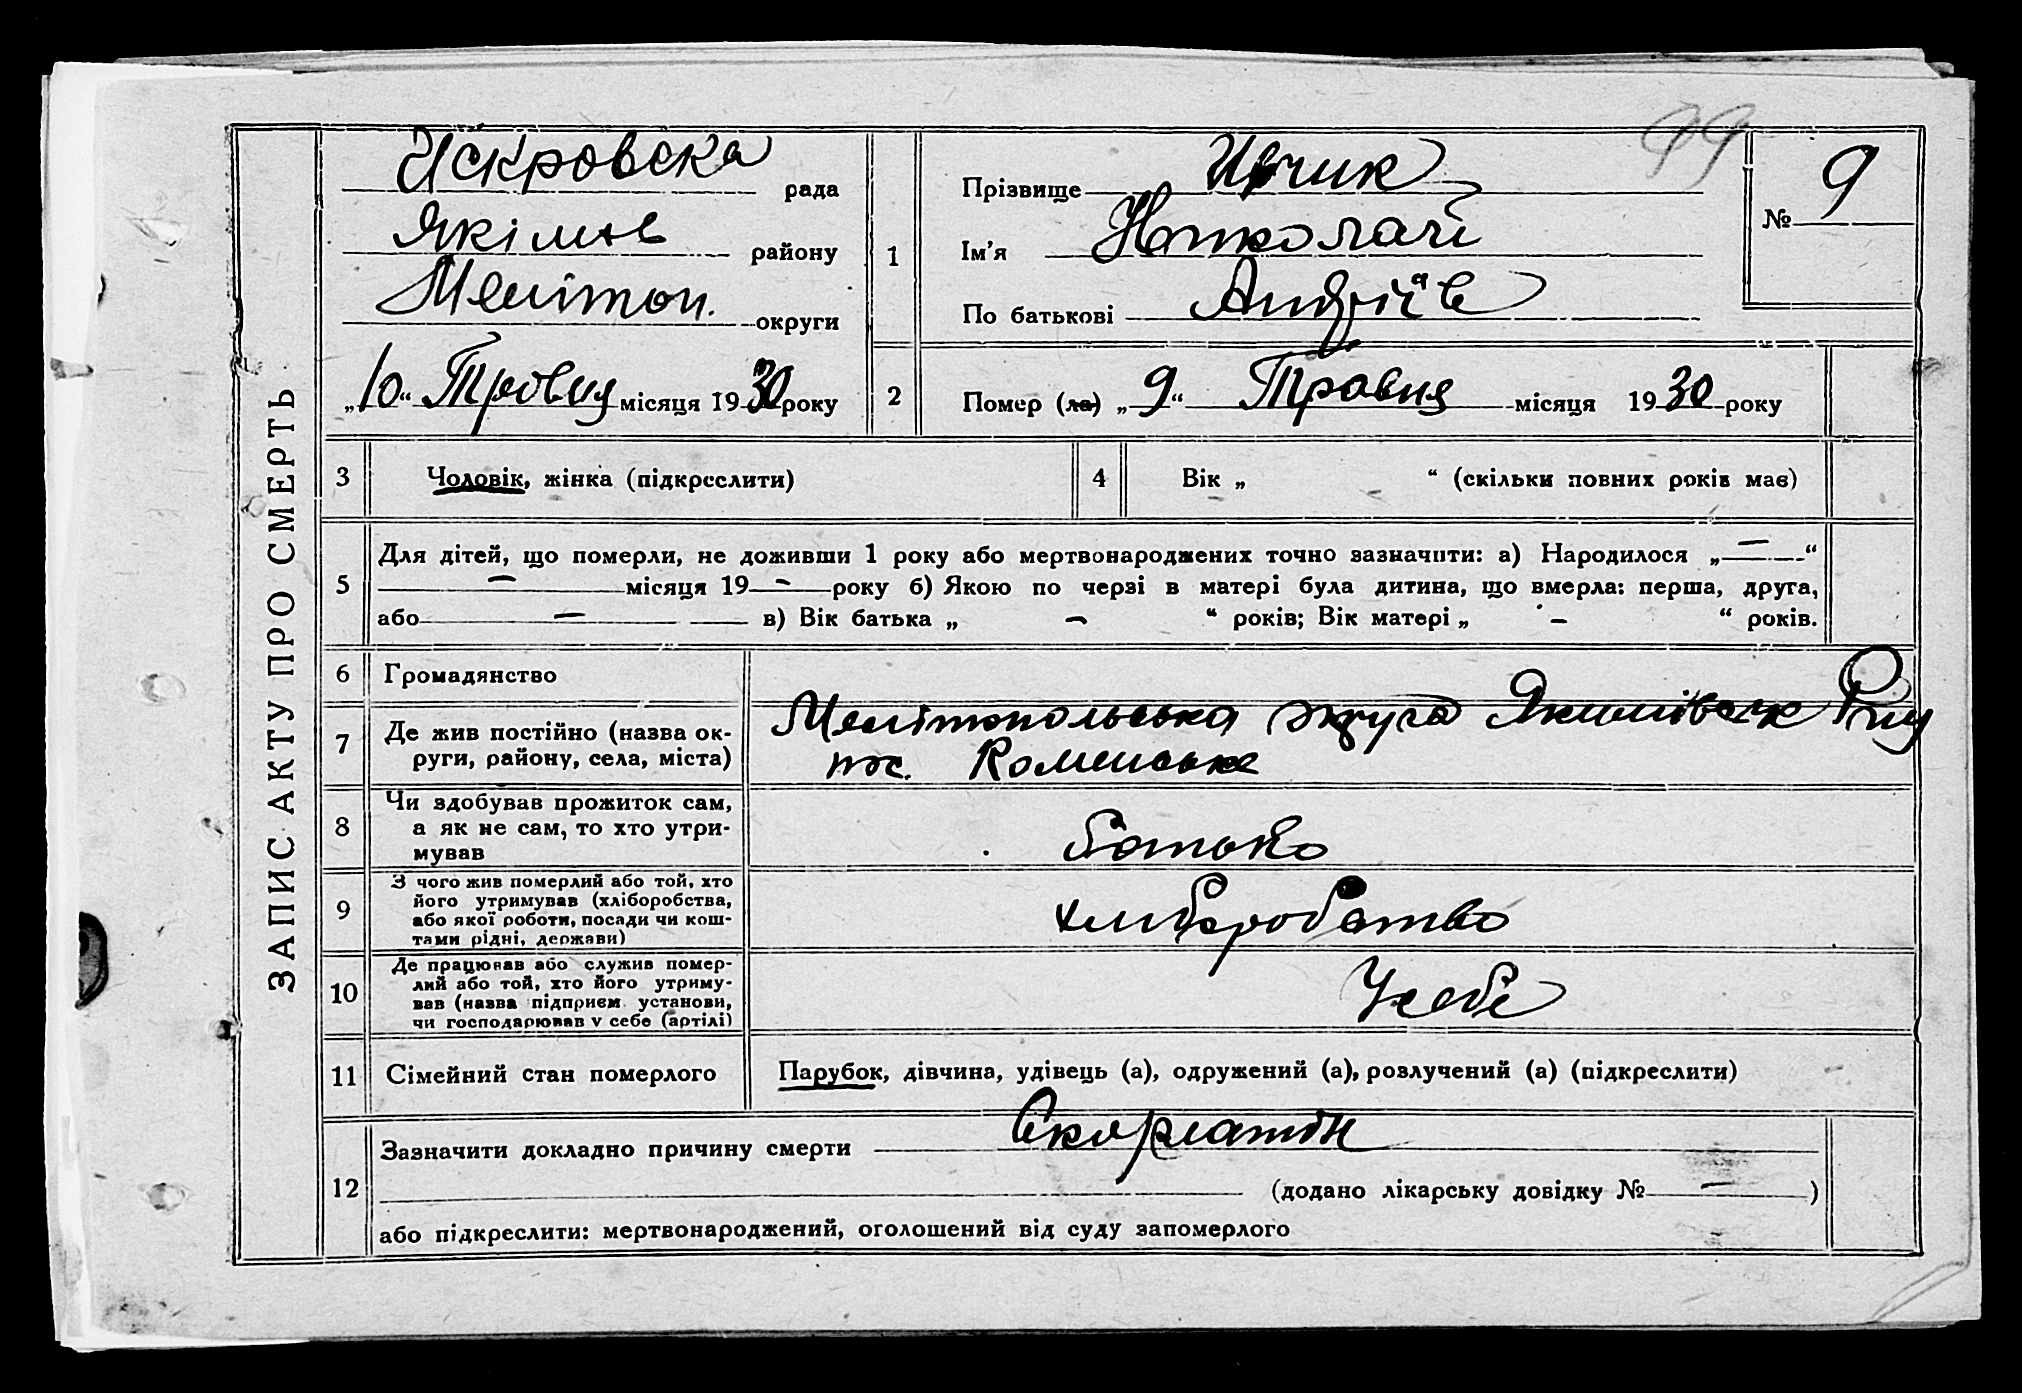 ЗАПИС АКТУ ПРО СМЕРТЬ
Искровска рада
Якімов району
Меліто­п. округи
„10“ Тровня місяця 1930 року
99
№ 9
1
Прізвище
Ім'я Николай
По батькові Андріїв
2
Помер (ла) „9“ Травня місяця 1930 року
3
Чоловік, жінка (підкреслити)
4
Вік „ “ (скільки повних років має)
5
Для дітей, що померли, не доживши 1 року або мертвонароджених точно зазначити: а) Народилося „—“
— місяця 19 — року б) Якою по черзі в матері була дитина, що вмерла: перша, друга,
або — в) Вік батька „ — “ років; Вік матері „ — “ років.
6
Громадянство
7
Де жив постійно (назва ок-
руги, району, села, міста)
Мелітопольська округа Якимівськ Р-ну
пос.
8
Чи здобував прожиток сам,
а як не сам, то хто утри-
мував
батько
9
З чого жив померлий або той, хто
його утримував (хліборобства,
або якої роботи, посади чи кош-
тами рідні, держави)
хлиборобство
10
Де працював або служив помер-
лий або той, хто його утриму-
вав (назва підприєм. установи,
чи господарював у себе (артілі)
У себе
11
Сімейний стан померлого
Парубок, дівчина, удівець (а), одружений (а), розлучений (а) (підкреслити)
12
Зазначити докладно причину смерти Скорлатін
(додано лікарську довідку № — )
або підкреслити: мертвонароджений, оголошений від суду запомерлого